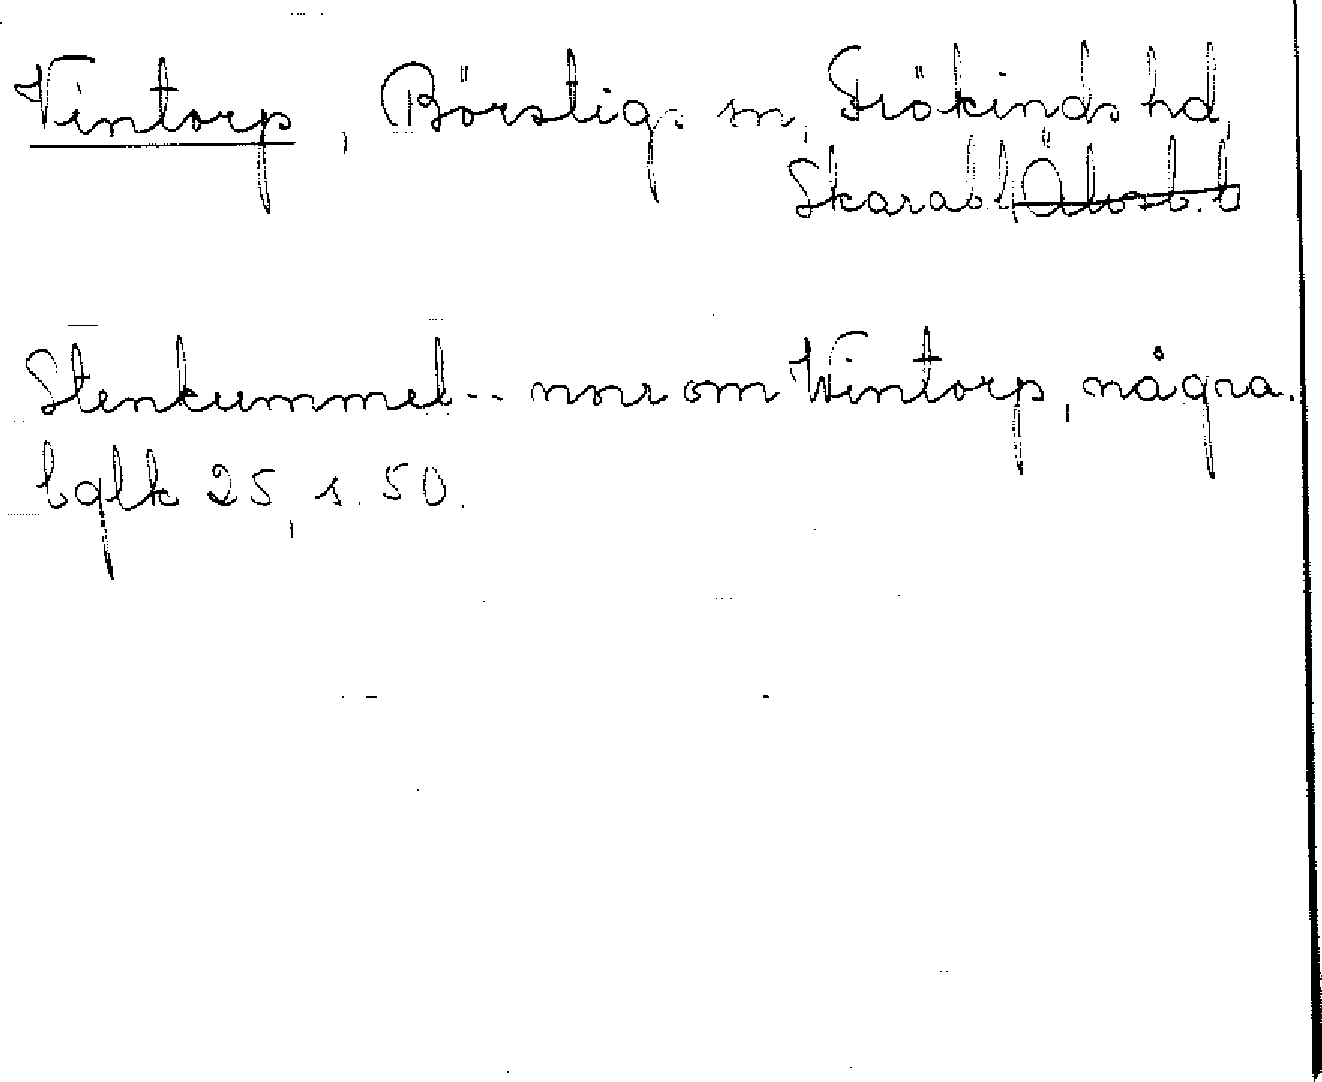 Vintorp, Börstigs sn, Frökinds hd,
Skarab l, Älvsb. l
Stenkummel -- norr om Wintorp, några.
bglk 25, s. 50.